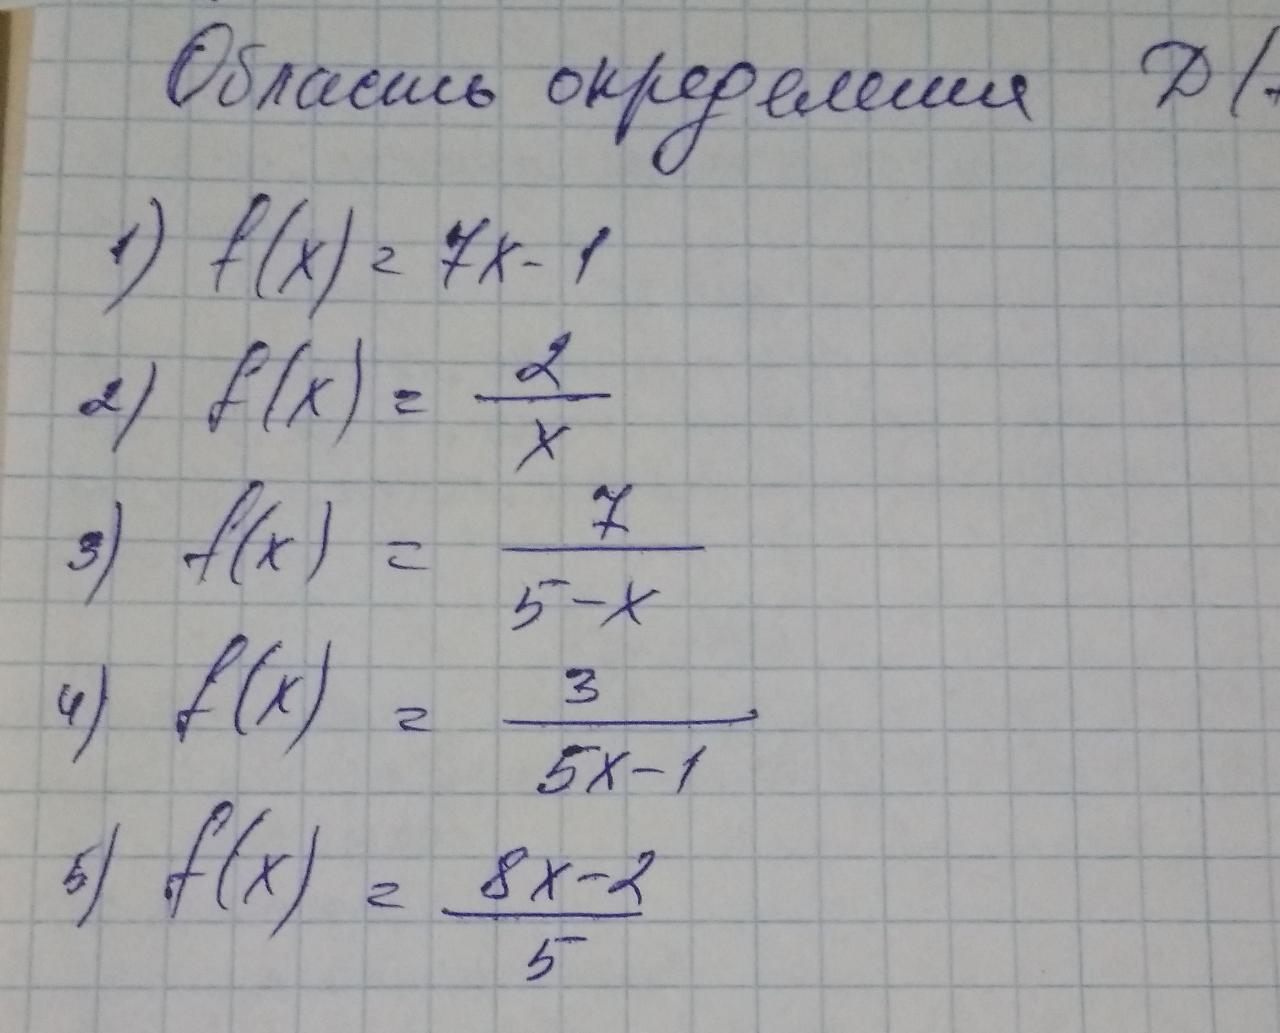 Область определения D(
1) f(x) = 7x - 1
2) f(x) = 2/x
3) f(x) = 7/(5-x)
4) f(x) = 3/(5x-1)
5) f(x) = (8x-2)/5